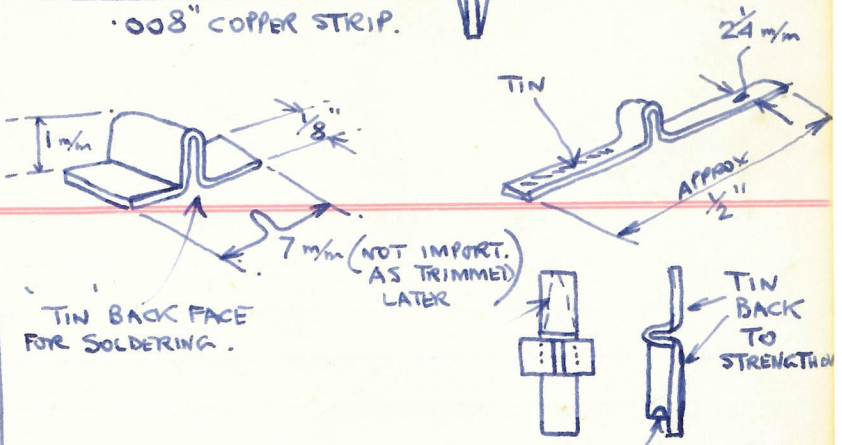 .008" COPPER STRIP.
2¼ m/m
TIN
1 m/m
1/8"
APPROX
½"
7 m/m (NOT IMPORT.
AS TRIMMED)
LATER
'TIN' BACK FACE
FOR SOLDERING.
TIN
BACK
TO
STRENGTHEN